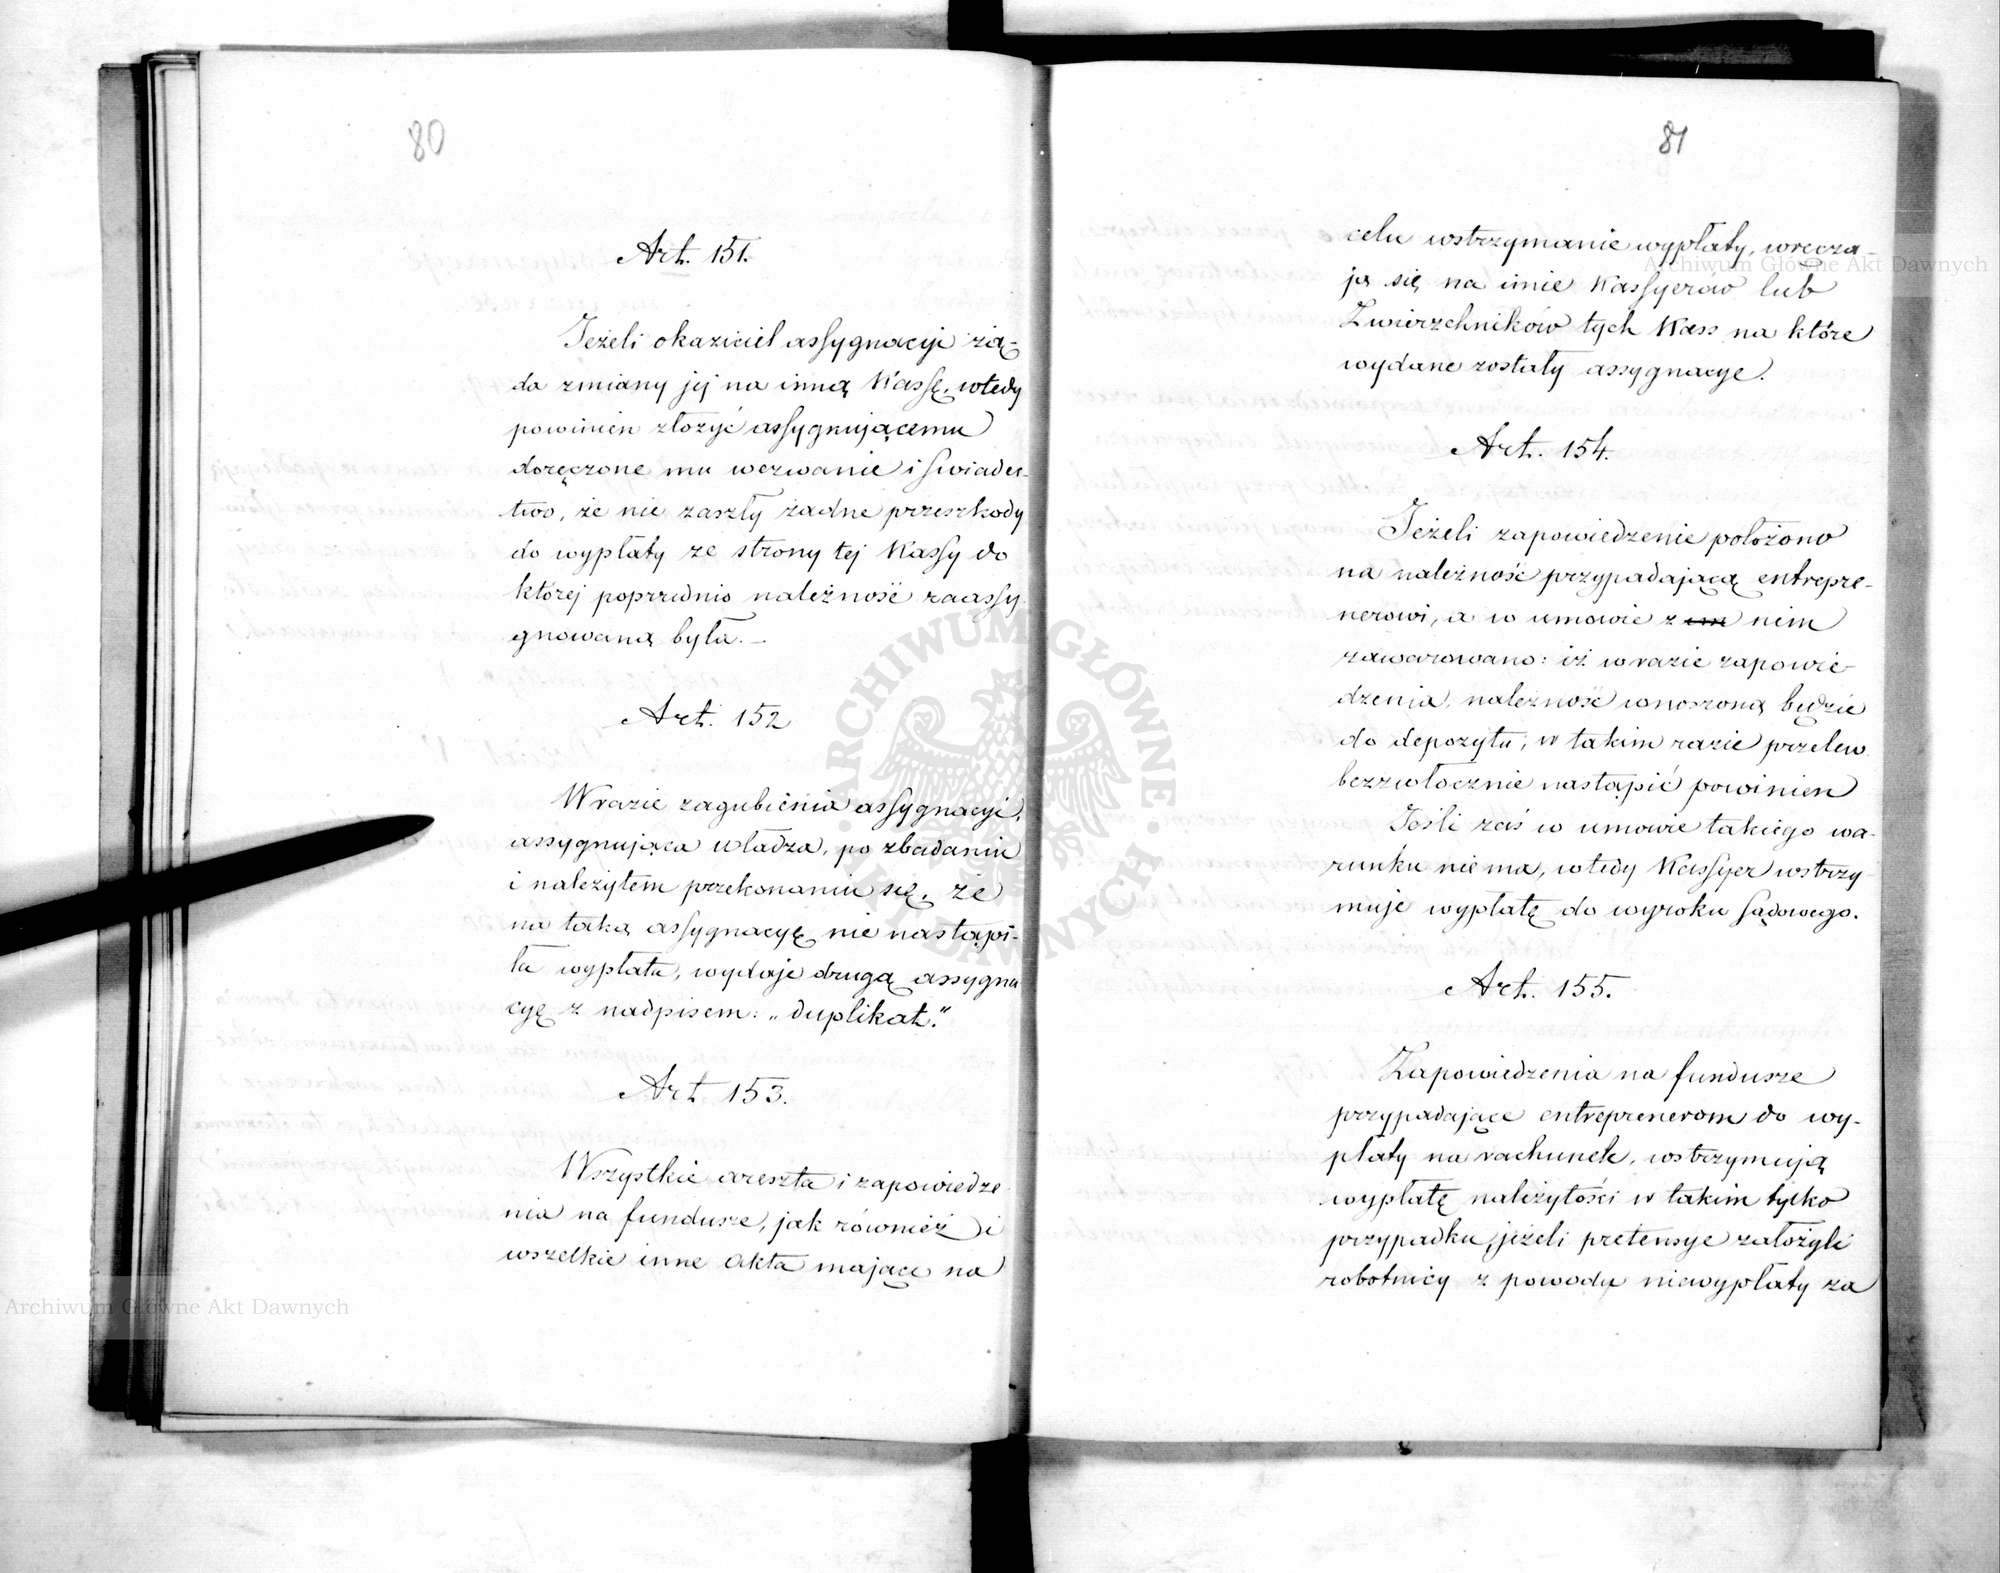 80
Art. 151.
Jeżeli okaziciel assygnacyi żą-
da zmiany jej na inną Kassę, wtedy
powinien złożyć assygnującemu
doręczone mu wezwanie i świadec-
two, że nie zaszły żadne przeszkody
do wypłaty ze strony tej Kassy do
której poprzednio należność zaassy-
gnowaną była. –
Art. 152
W razie zagubienia assygnacyi,
assygnująca władza, po zbadaniu
i należytem przekonaniu się, że
na taką assygnacyę nie nastąpi-
ła wypłata, wydaje drugą assygna
cyę z nadpisem: „duplikat."
Art 153.
Wszystkie areszta i zapowiedze
nia na fundusze, jak również i
wszelkie inne akta mające na
81
celu wstrzymanie wypłaty, wręcza-
ją się na imie Kassyerów lub
Zwierzchników tych Kass na które
wydane zostały assygnacye.
Art. 154.
Jeżeli zapowiedzenie położono
na należność przypadającą entrepre-
nerowi, a w umowie z nim
zawarowano: iż w razie zapowie-
dzenia, należność wnoszoną będzie
do depozytu; w takim razie przelew
bezzwłocznie nastąpić powinien
Jeśli zaś w umowie takiego wa-
runku nie ma, wtedy Kassyer wstrzy-
muje wypłatę do wyroku sądowego.
Art. 155.
Zapowiedzenia na fundusze
przypadające entreprenerom do wy-
płaty na rachunek, wstrzymują
wypłatę należytości w takim tylko
przypadku, jeżeli pretensye założyli
robotnicy z powodu niewypłaty za
Archiwum Główne Akt Dawnych
Archiwum Główne Akt Dawnych
ARCHIWUM GŁÓWNE AKT DAWNYCH